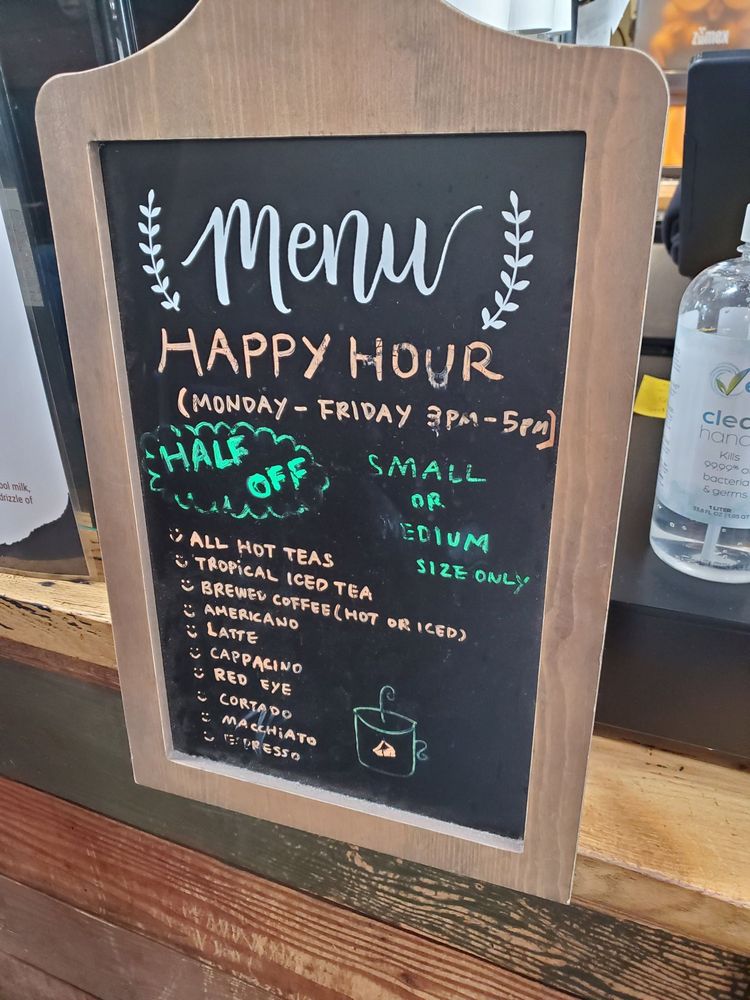 zumex
Menu
HAPPY HOUR
(MONDAY - FRIDAY 3PM - 5PM)
HALF
OFF
SMALL
OR
MEDIUM
SIZE ONLY
ALL HOT TEAS
TROPICAL ICED TEA
BREWED COFFEE (HOT OR ICED)
AMERICANO
LATTE
CAPPACINO
RED EYE
CORTADO
MACCHIATO
ESPRESSO
ool milk,
drizzle of
clea
hand
Kills
99.99% o
bacteria
& germs
1 LITER